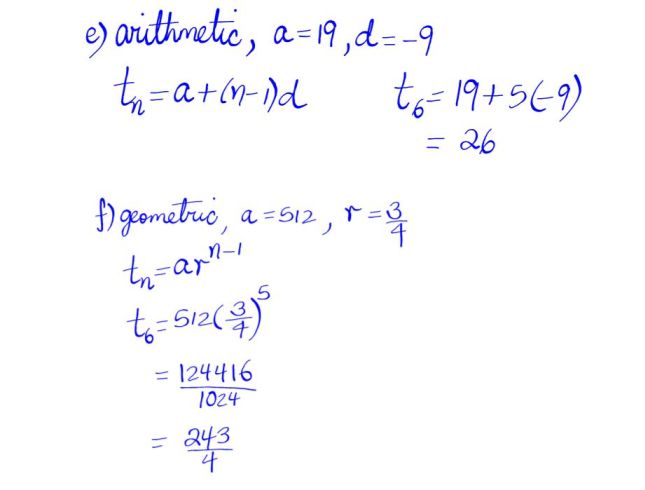 e) arithmetic, a=19, d=-9
tₙ=a+(n-1)d t₆=19+5(-9)
= 26
f) geometric, a=512, r=3/4
tₙ=arⁿ⁻¹
t₆=512(3/4)⁵
= 124416/1024
= 243/4